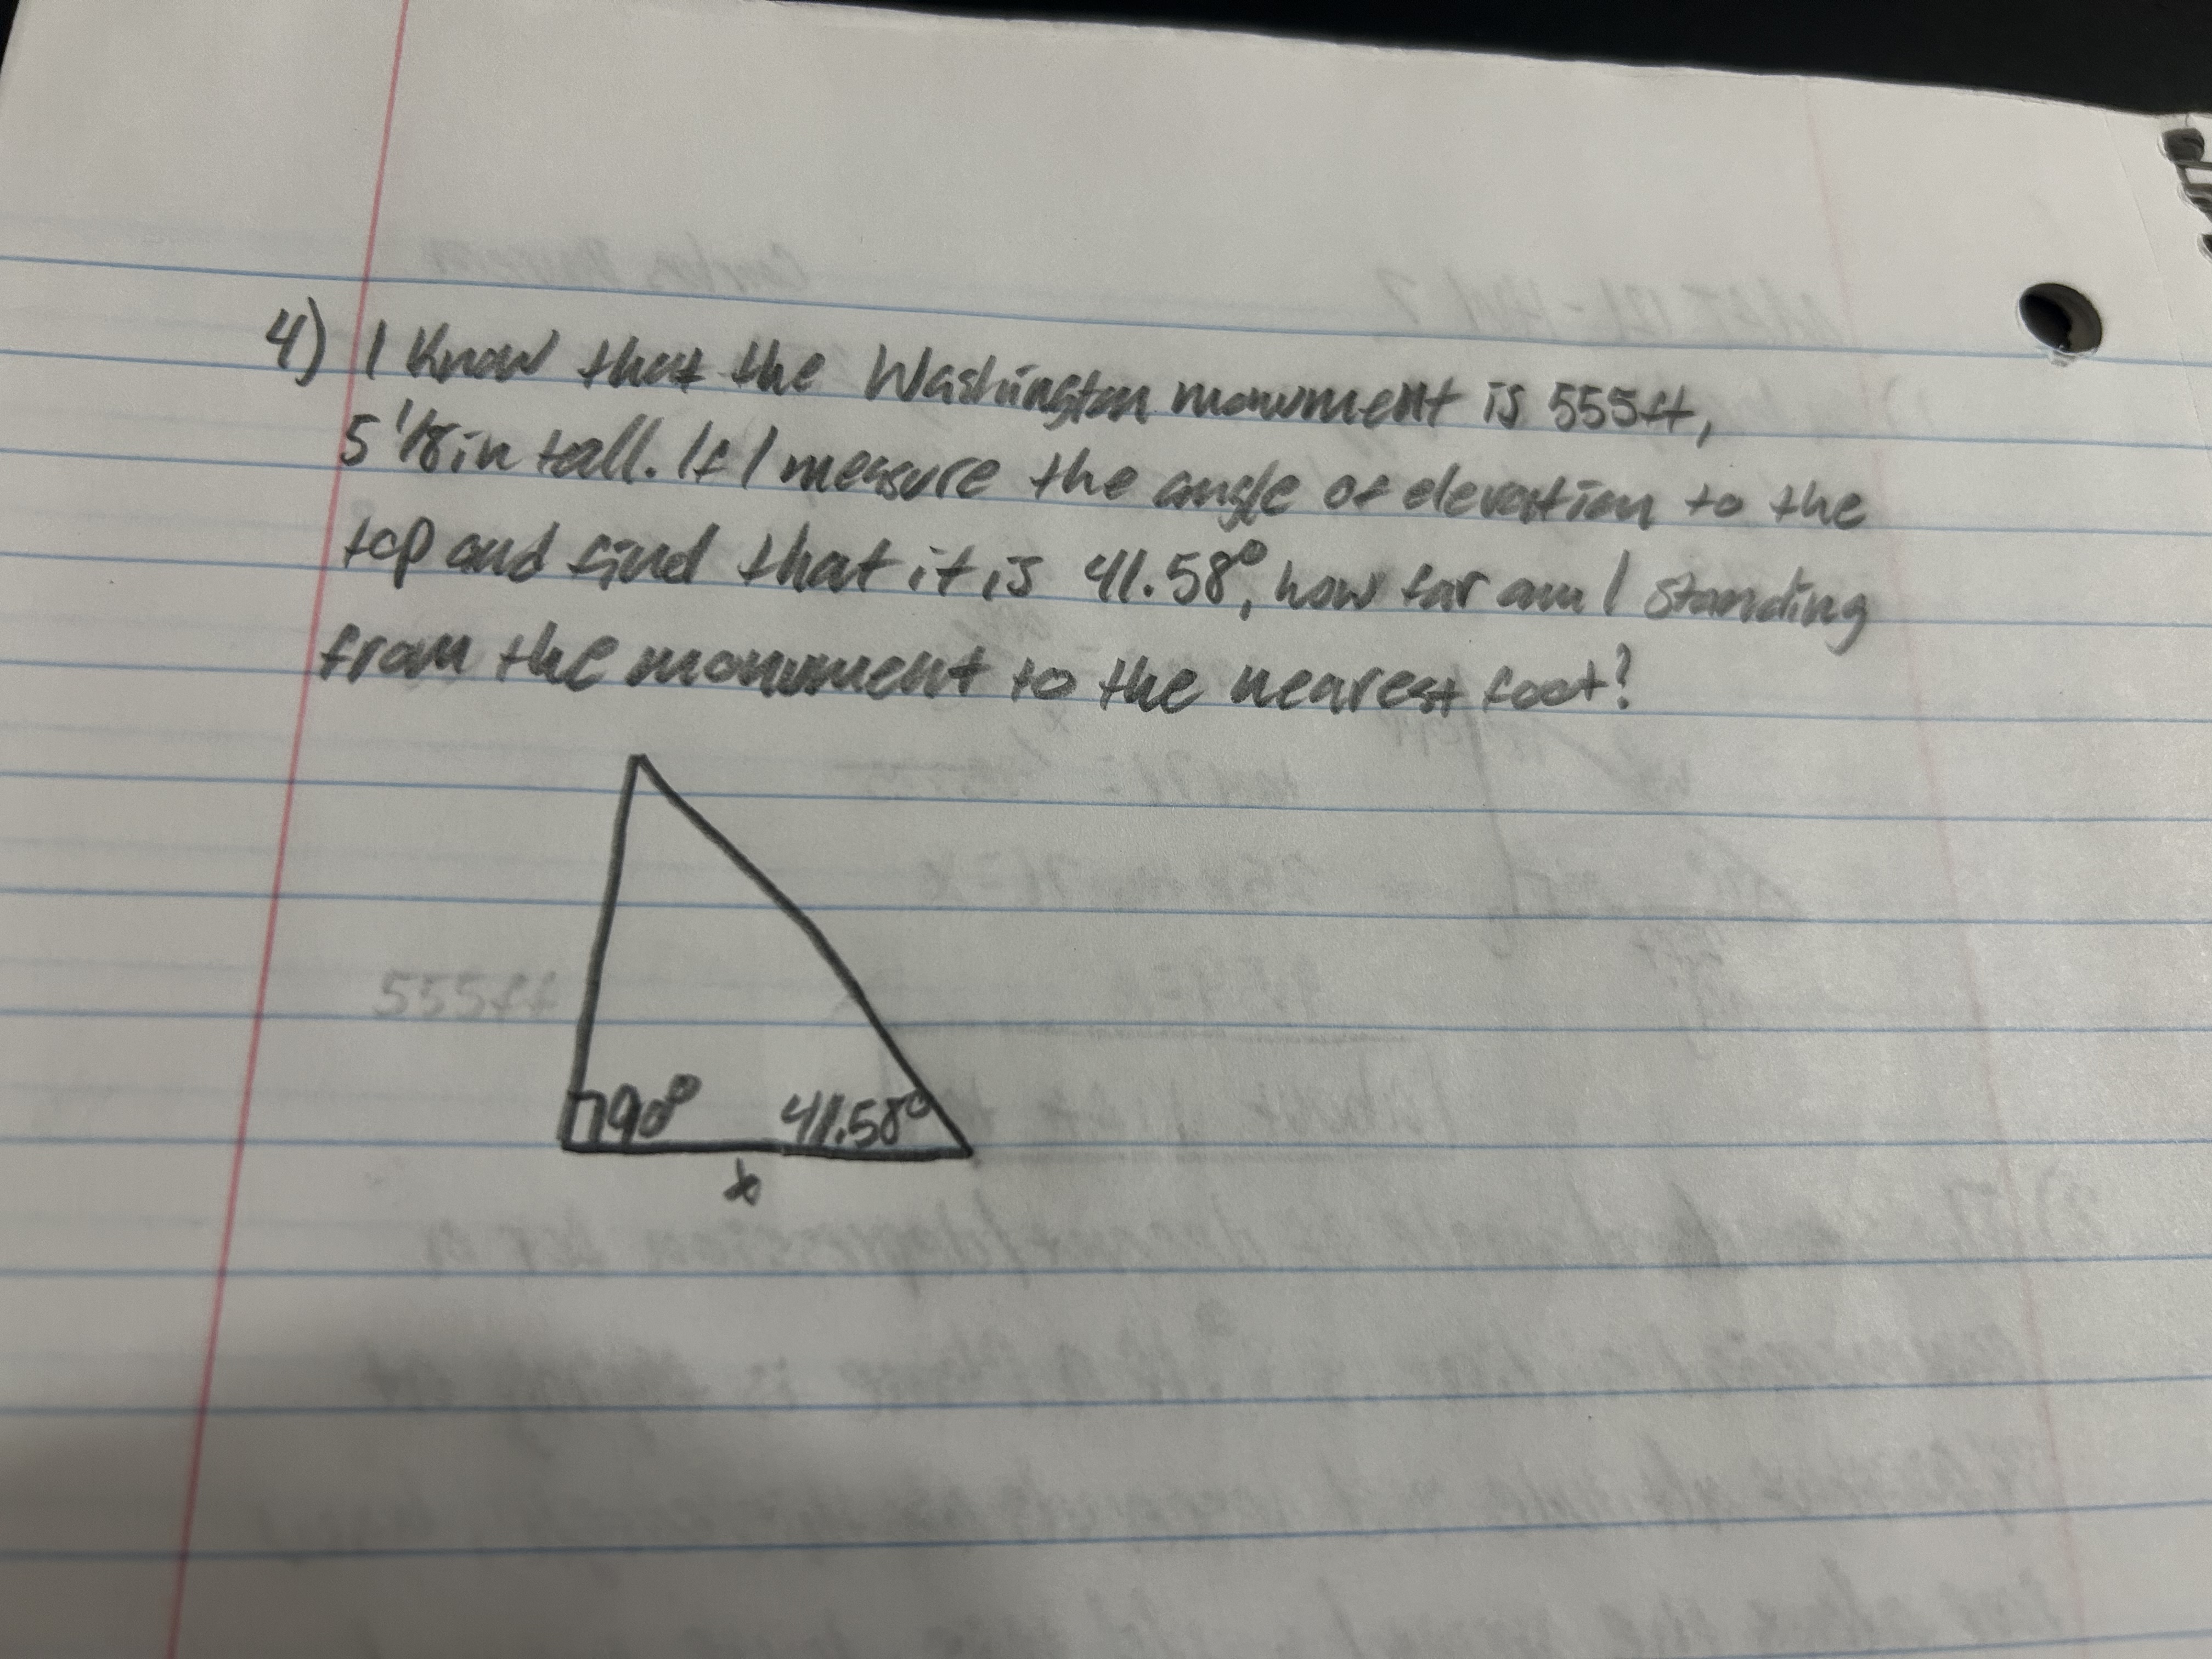 4) I know that the Washington monument is 555ft,
5 1/8in tall. If I measure the angle of elevation to the
top and find that it is 41.58°, how far am I standing
from the monument to the nearest foot?
555ft
90° 41.58°
x